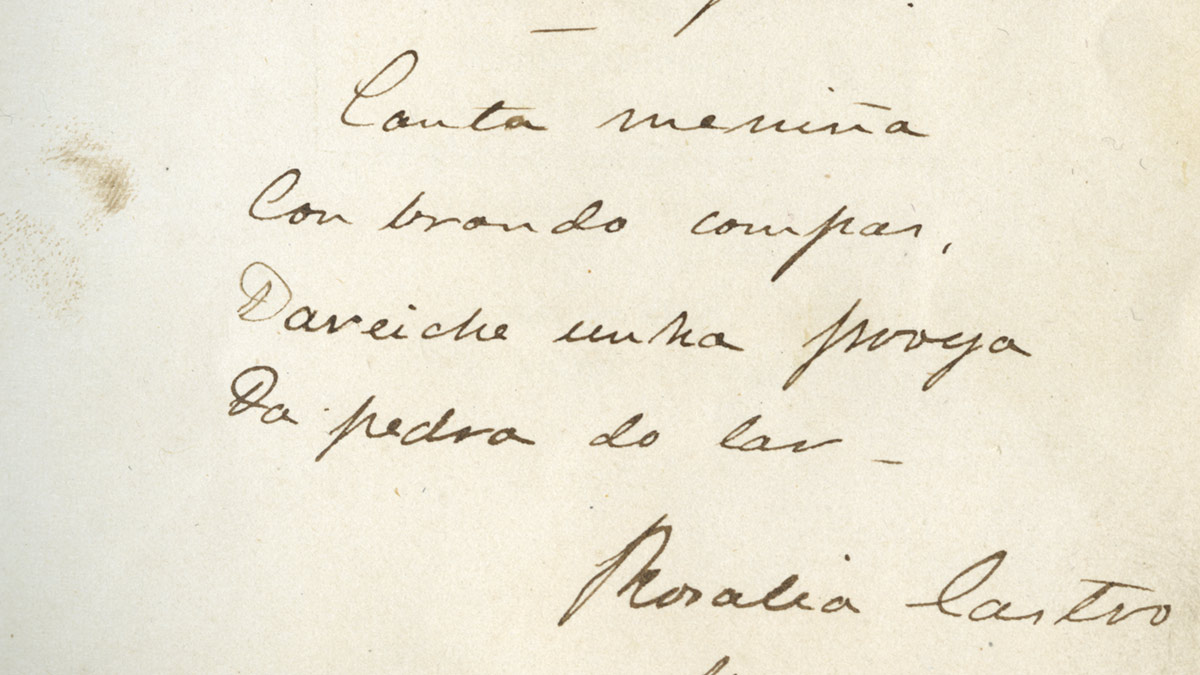 Canta meniña
Con brando compas,
Dareiche unha proya
Da pedra do lar_
Rosalia Castro